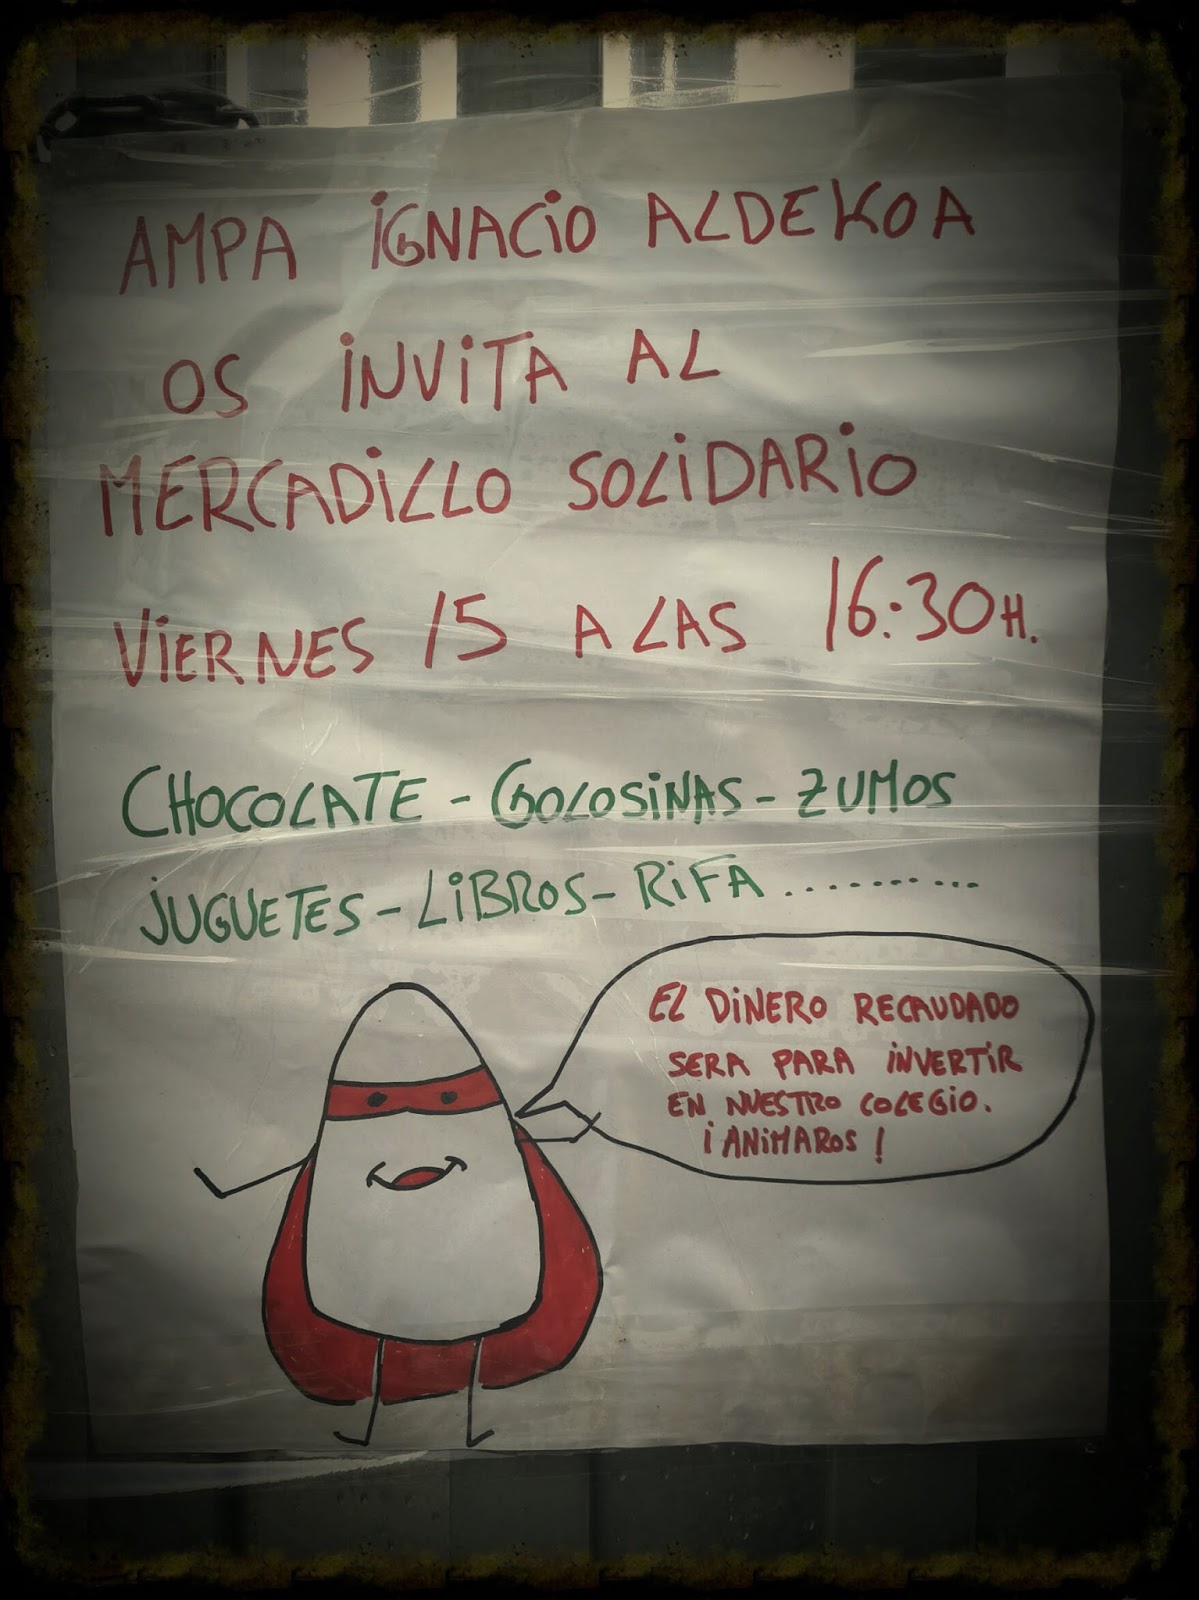 AMPA IGNACIO ALDEKOA
OS INVITA AL
MERCADILLO SOLIDARIO
VIERNES 15 A LAS 16:30H.
CHOCOLATE - GOLOSINAS - ZUMOS
JUGUETES - LIBROS - RIFA ...........
EL DINERO RECAUDADO
SERA PARA INVERTIR
EN NUESTRO COLEGIO.
¡ANIMAROS!